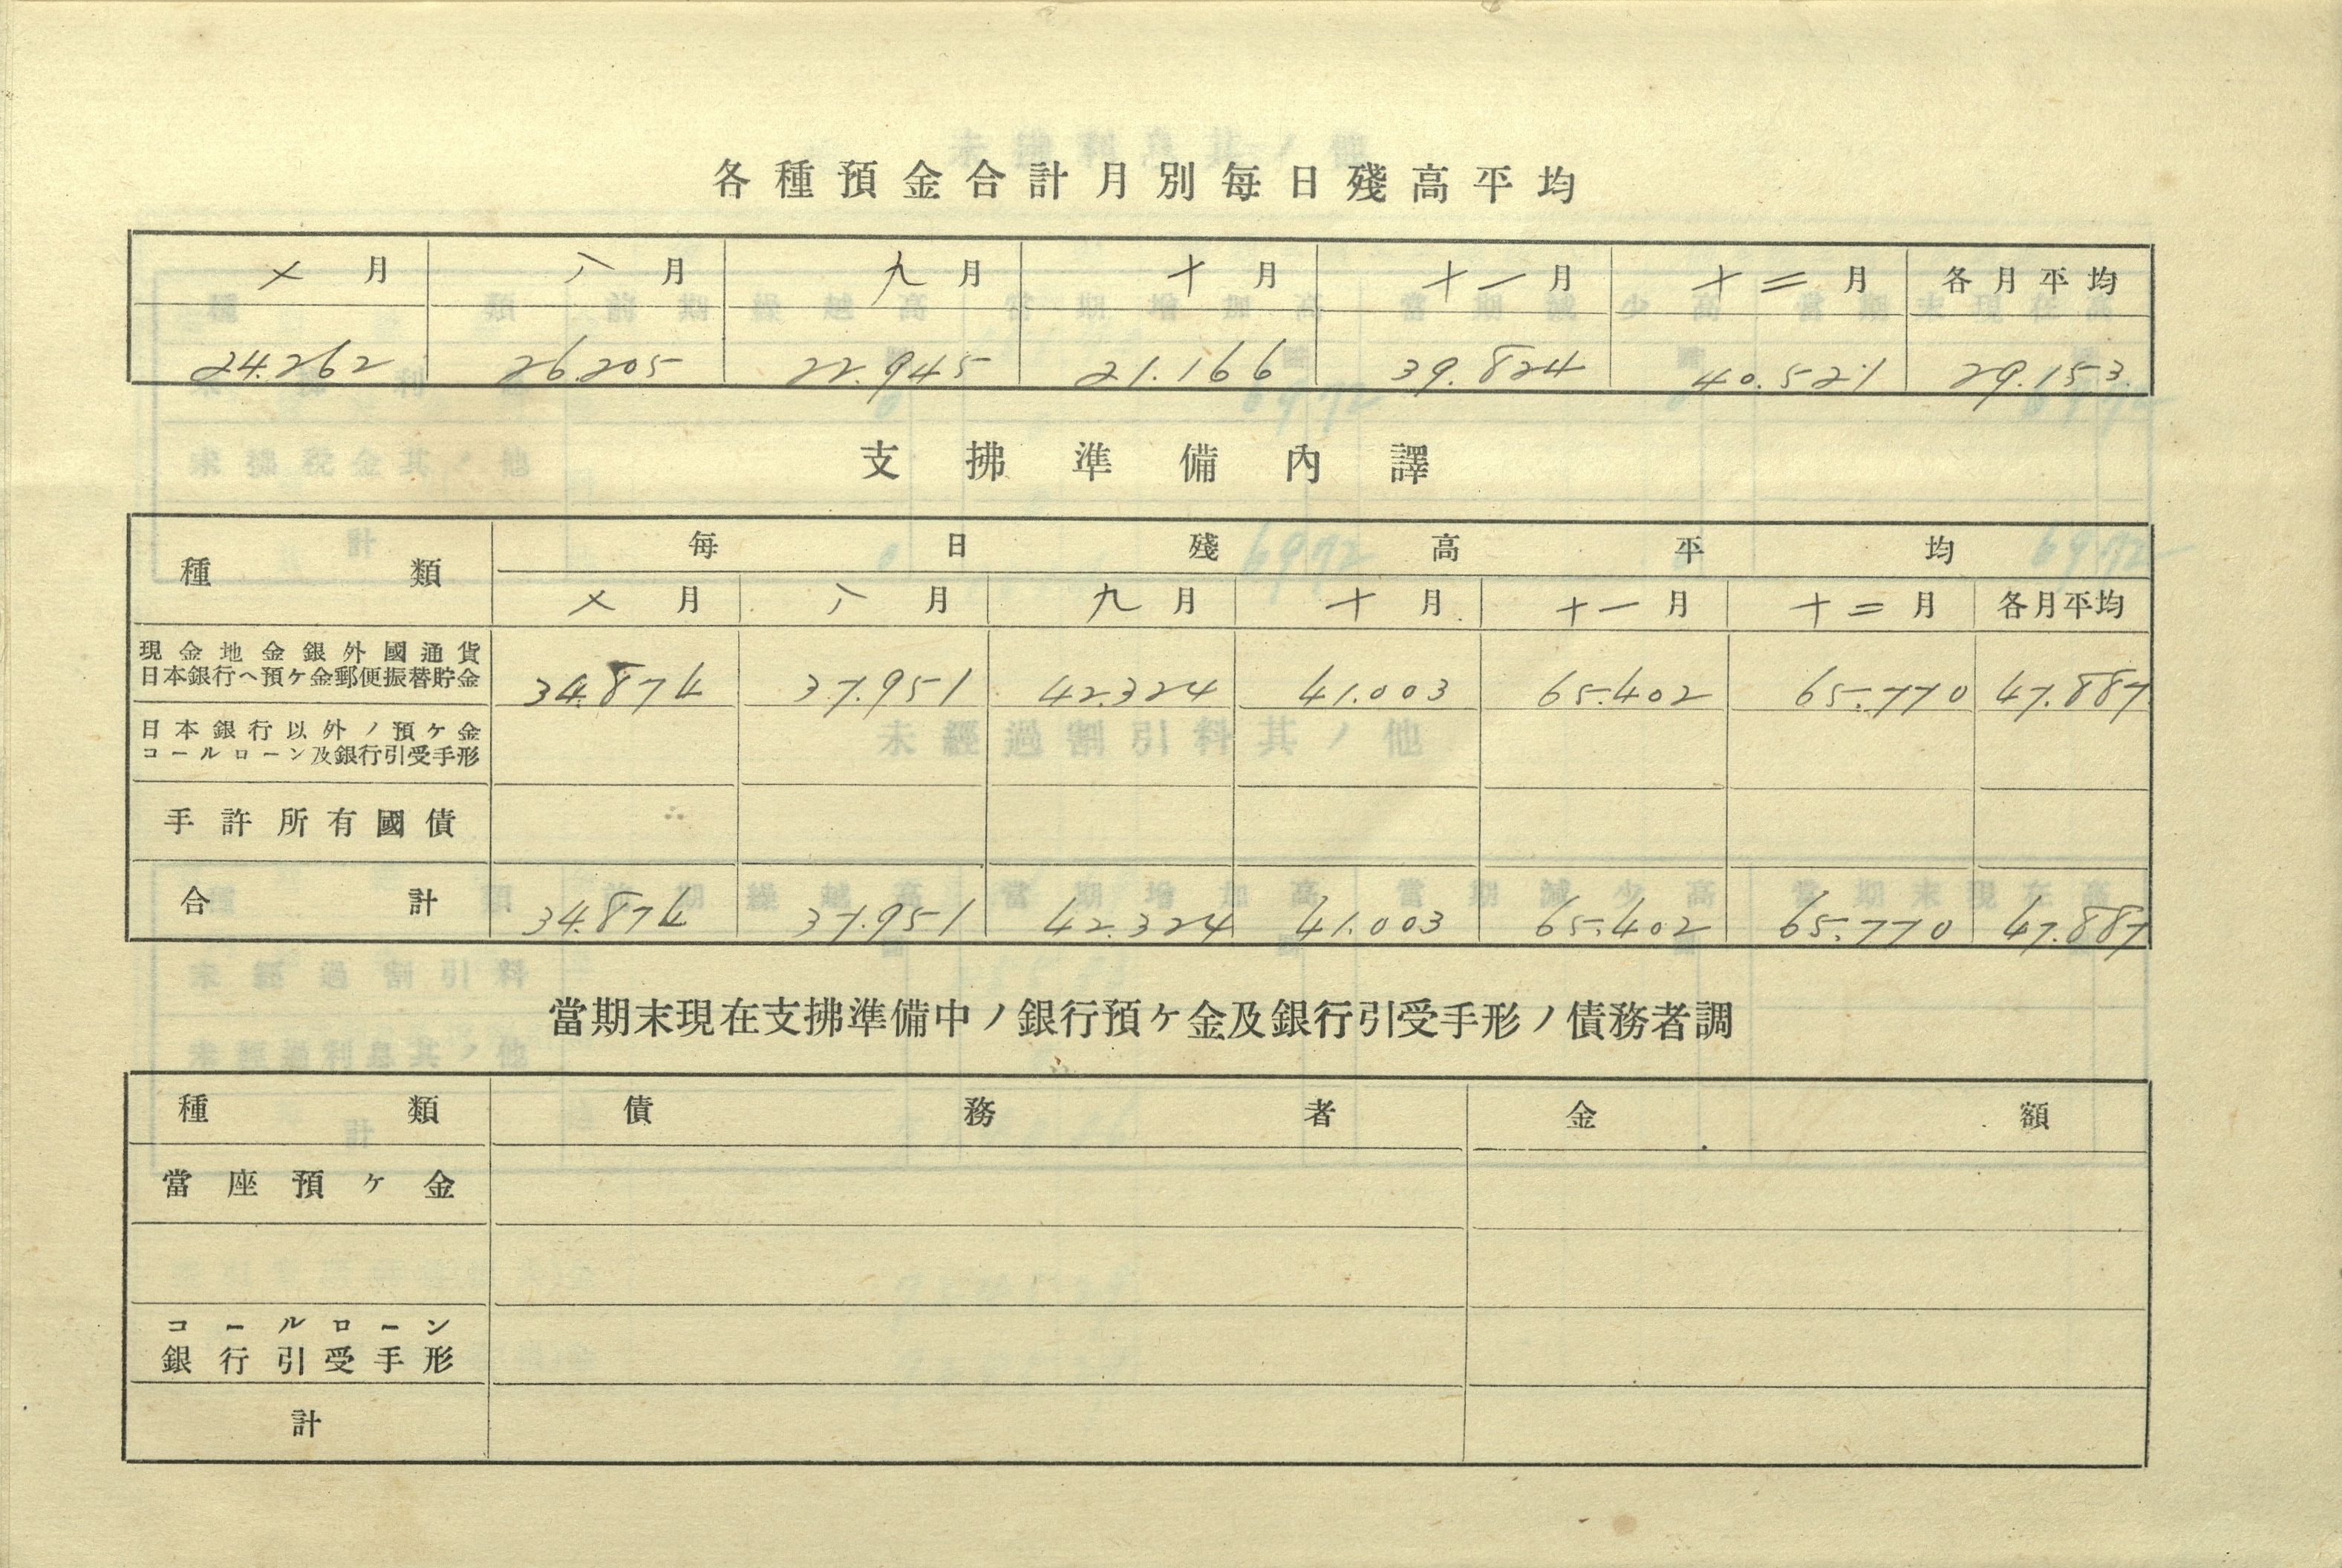 各種預金合計月別每日殘高平均
七月 八月 九月 十月 十一月 十二月 各月平均
24.262 26.205 22.945 21.166 39.824 40.521 29.153
支拂準備內譯
種類 每日殘高平均
七月 八月 九月 十月 十一月 十二月 各月平均
現金地金銀外國通貨
日本銀行ヘ預ケ金郵便振替貯金 34.874 37.951 42.324 41.003 65.402 65.770 47.887
日本銀行以外ノ預ケ金
コールローン及銀行引受手形
手許所有國債
合計 34.874 37.951 42.324 41.003 65.402 65.770 47.887
當期末現在支拂準備中ノ銀行預ケ金及銀行引受手形ノ債務者調
種類 債務者 金額
當座預ケ金
コールローン
銀行引受手形
計